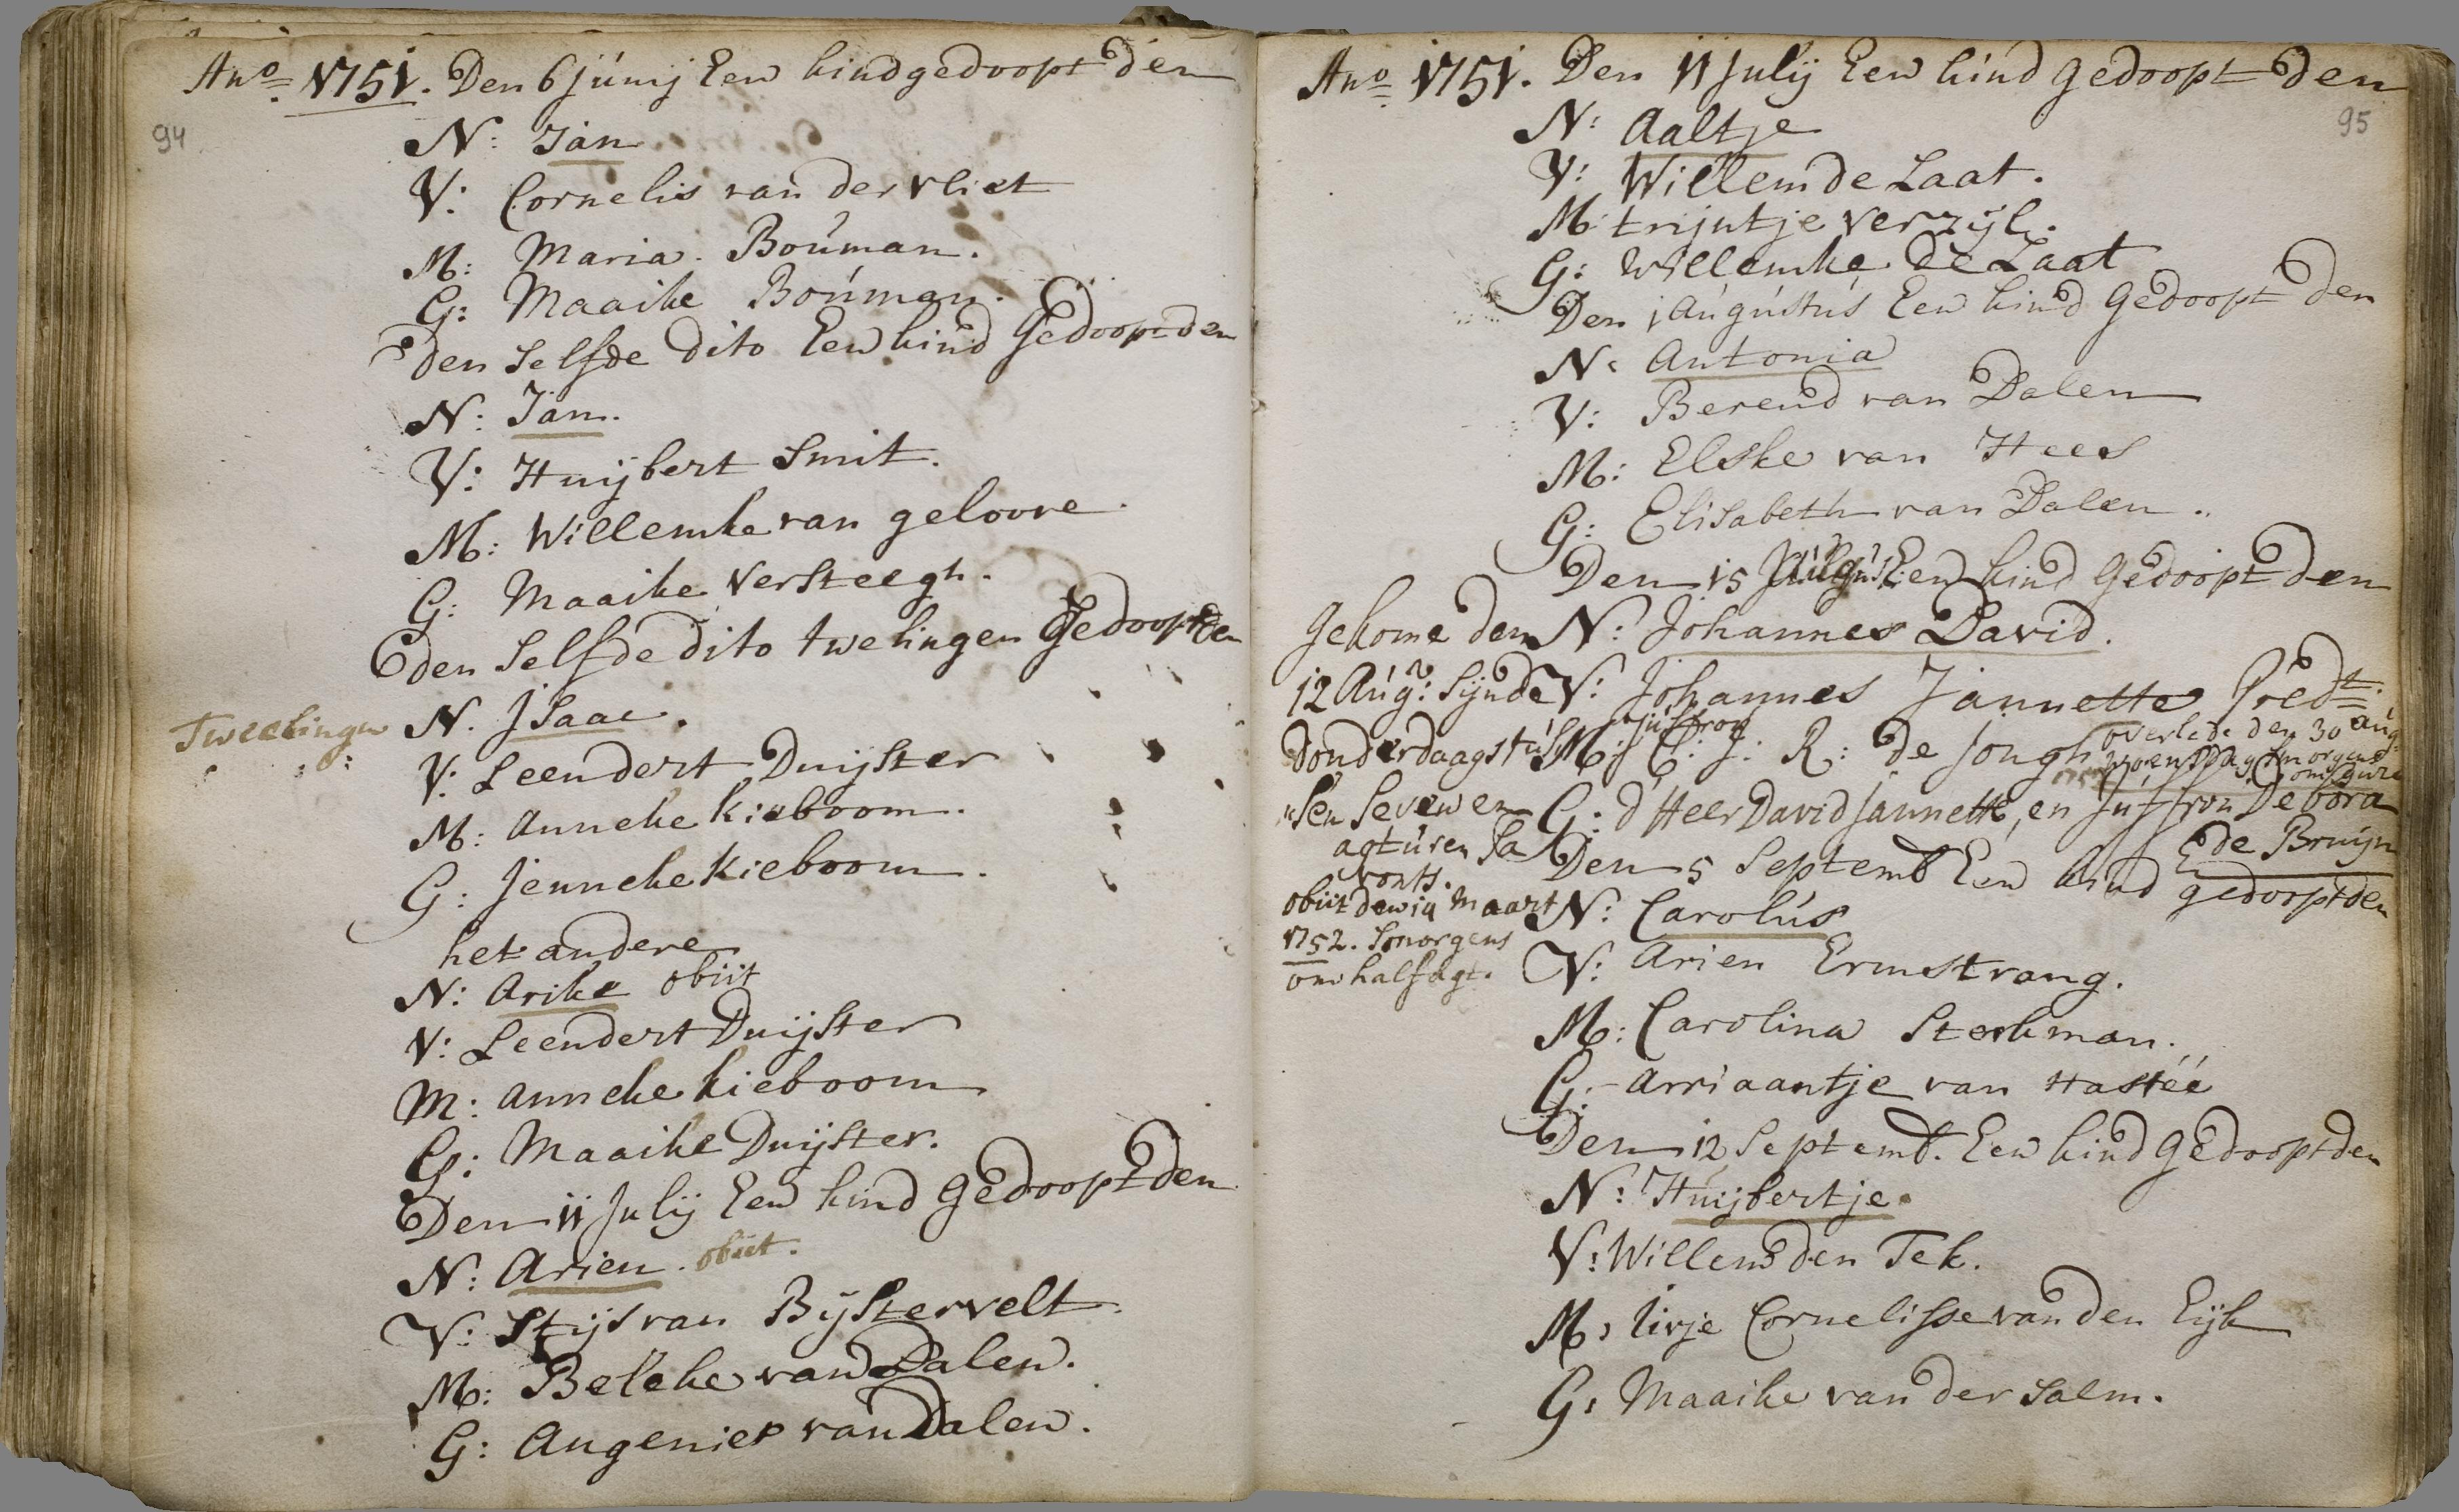 Ano 1751. Den 6 junij Een kind gedoopt den
94
N: Jan
V: Cornelis van der vliet
M: Maria Bouman.
G: Maaike Bouman.
den selfde dito Een kind Gedoopt den
N: Jan.
V: Huijbert Smit.
M: Willemke van geloove.
G: Maaike Versteegh.
den selfde dito twelingen Gedoopt den
Tweelingen
N. Jsaac.
V: Leendert Duijster
M: Anneke Kieboom.
G: Jenneke Kieboom.
het andere
N: Arike obiit
V: Leendert Duijster
M: Anneke kieboom
G: Maaike Duijster.
Den 11 Julij Een kind Gedoopt den
N: Arien. obiit.
V: Stijs van Bijstervelt.
M: Beleke van Dalen.
G: Angenies van Dalen.
Ano 1751. Den 11 Julij Een kind gedoopt den
95
N: Aaltje
V: Willem de Laat.
M: trijntje verzijl.
G: Willemke de Laat
Den 1 Augustus Een kind Gedoopt den
N: Antonia
V: Berend van Dalen
M: Elske van Hees
G: Elisabeth van Dalen.
Den 15 Een kind Gedoopt den
N: Johannes David.
V: Johannes Jannette Predt.
Juffrou
M: C. J. R: de Jongh
overlede den 30 aug
woensdag smorgens
G: d'Heer David Jannette, en Juffrou Debora
E de Bruijn
gekome den
12 Aug: sijnde
donderdaags tus
"sen seven en
agt uren sa
vonts.
obiit den 19 Maart
1752. smorgens
om half agt.
Den 5 Septemb Een kind gedoopt den
N: Carolus
V: Arien Ermstrang.
M: Carolina Sterkman.
G: Arriaantje van Hastéé
Den 12 Septemb. Een kind Gedoopt den
N: Huijbertje.
V: Willem den Tek.
M: Lirje Cornelisse van den Eijk
G: Maaike van der Salm.